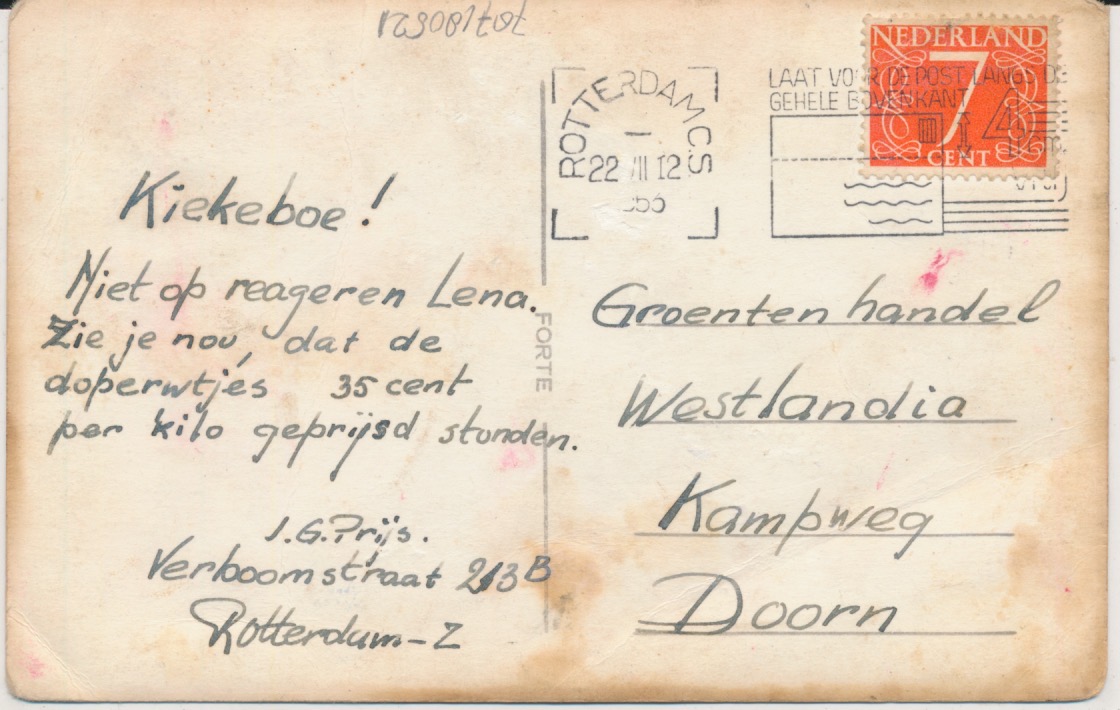 Kiekeboe!
Niet op reageren Lena.
Zie je nou, dat de
doperwtjes 35 cent
per kilo geprijsd stonden.
J.G. Prijs.
Verboomstraat 213B
Rotterdam-Z
FORTE
ROTTERDAM C.S
22 VII 12
NEDERLAND
7
CENT
LAAT VOOR DE POST LANGS DE
GEHELE BOVENKANT 4
Groentenhandel
Westlandia
Kampweg
Doorn